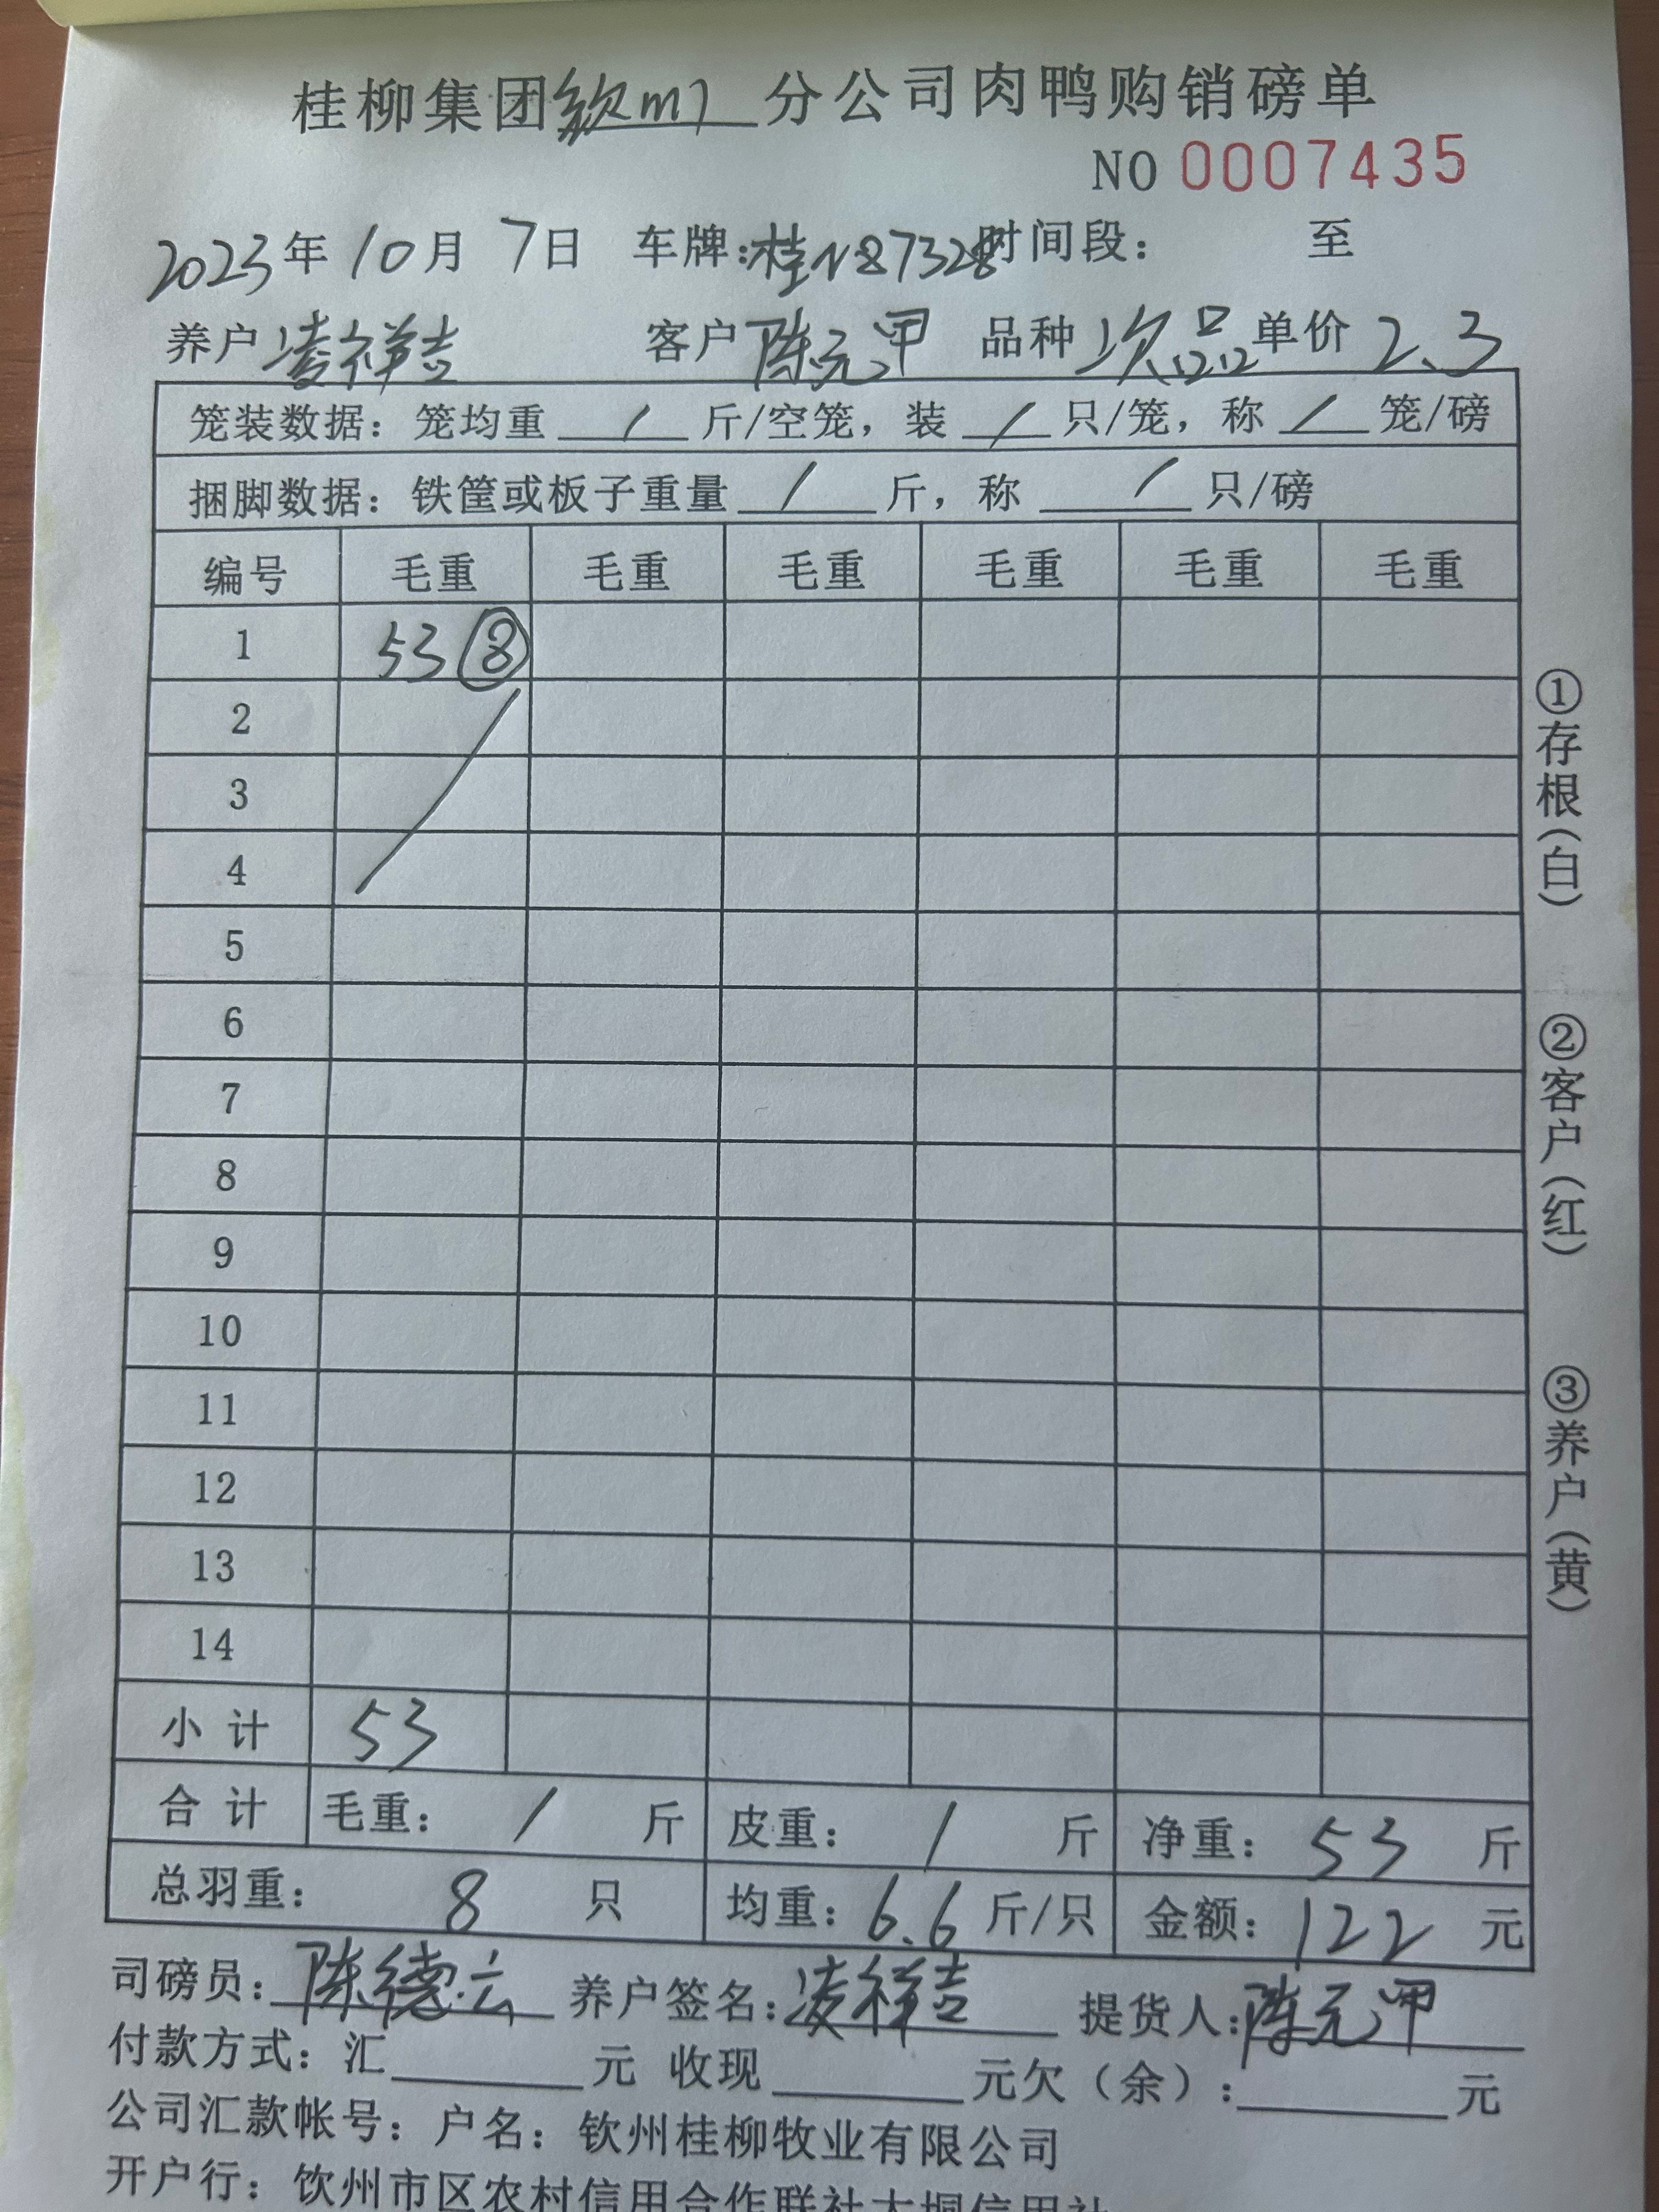 桂柳集团钦州分公司肉鸭购销磅单
NO 0007435
2023年10月7日 车牌:桂N87328时间段: 至
养户凌祥吉 客户陈元甲 品种次品单价2.3
笼装数据: 笼均重 / 斤/空笼, 装 / 只/笼, 称 / 笼/磅
捆脚数据: 铁筐或板子重量 / 斤, 称 / 只/磅
编号 毛重 毛重 毛重 毛重 毛重 毛重
1 53 ⑧
2
3
4
5
6
7
8
9
10
11
12
13
14
小计 53
合计 毛重: / 斤 皮重: / 斤 净重: 53 斤
总羽重: 8 只 均重: 6.6 斤/只 金额: 122 元
司磅员: 陈德云 养户签名: 凌祥吉 提货人: 陈元甲
付款方式: 汇 元 收现 元欠(余): 元
公司汇款帐号: 户名: 钦州桂柳牧业有限公司
开户行: 钦州市区农村信用合作联社大垌信用社
①存根(白)
②客户(红)
③养户(黄)